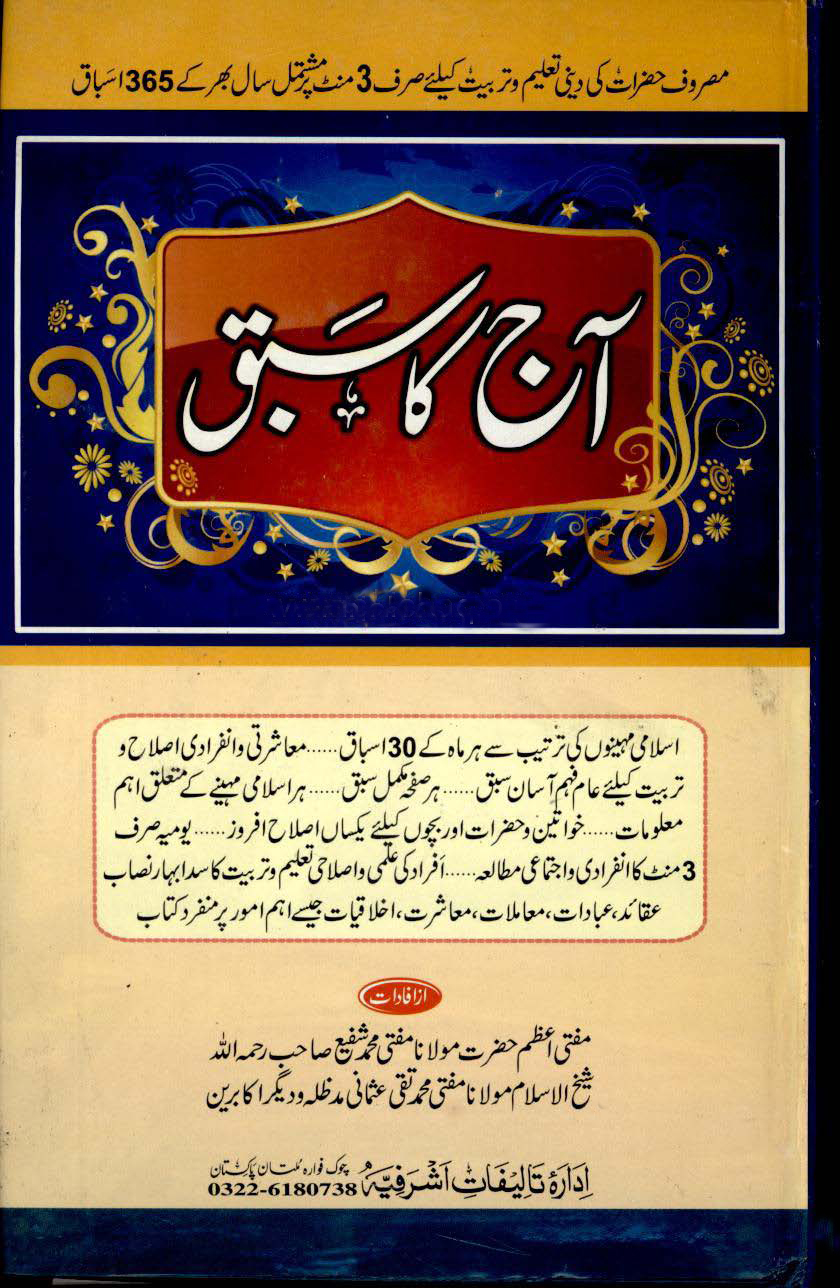 مصروف حضرات کی دینی تعلیم و تربیت کیلئے صرف 3 منٹ پر مشتمل سال بھر کے 365 اسباق
آج کا سبق
اسلامی مہینوں کی ترتیب سے ہر ماہ کے 30 اسباق......معاشرتی وانفرادی اصلاح و
تربیت کیلئے عام فہم آسان سبق......ہر صفحہ مکمل سبق......ہر اسلامی مہینے کے متعلق اہم
معلومات......خواتین وحضرات اور بچوں کیلئے یکساں اصلاح افروز......یومیہ صرف
3 منٹ کا انفرادی واجتماعی مطالعہ......افراد کی علمی واصلاحی تعلیم وتربیت کا سدا بہار نصاب
عقائد، عبادات، معاملات، معاشرت، اخلاقیات جیسے اہم امور پر منفرد کتاب
از افادات
مفتی اعظم حضرت مولانا مفتی محمد شفیع صاحب رحمہ اللہ
شیخ الاسلام مولانا مفتی محمد تقی عثمانی مدظلہ ودیگر اکابرین
ادارۂ تالیفات اشرفیہ چوک فوارہ ملتان پاکستان
0322-6180738